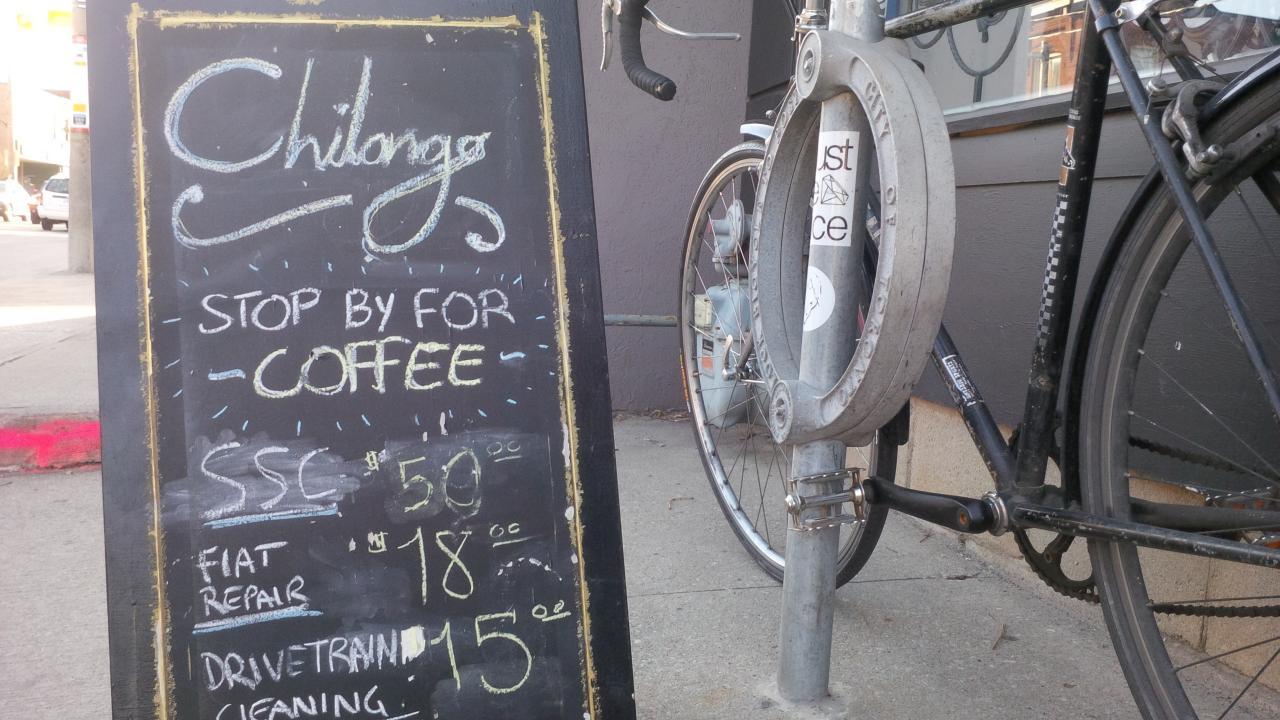 Chilango
STOP BY FOR
-COFFEE-
SSC $50.00
FIAT
REPAIR $18.00
DRIVETRAIN 15.00
CLEANING
CITY
ust
ce